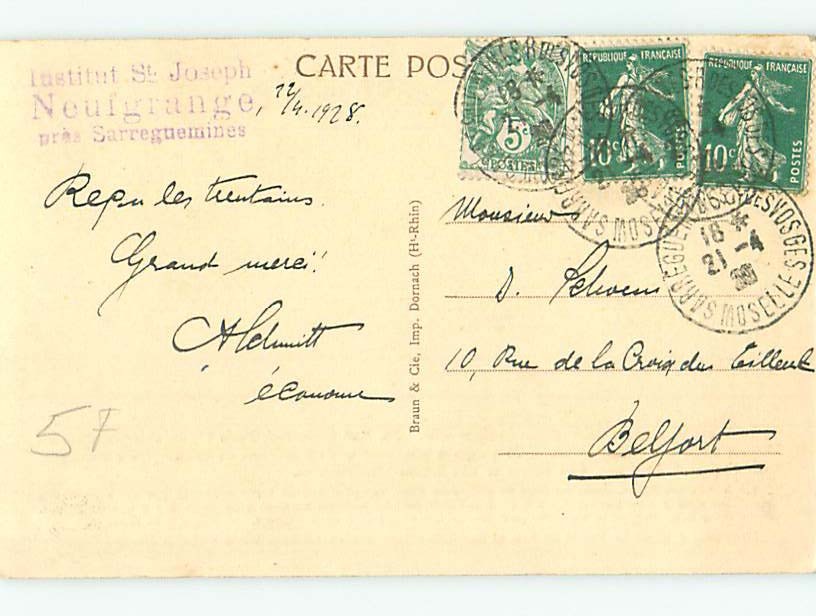 Institut St Joseph
Neufgrange
près Sarreguemines
CARTE POS
22/4.1928.
5c
POSTES
RÉPUBLIQUE FRANÇAISE
10c
POSTES
RÉPUBLIQUE FRANÇAISE
10c
POSTES
SARREGUEMINES R. DES VOSGES
18 *
21 -4
MOSELLE
Reçu les trentains.
Grand merci!
A Schmitt
économe
5F
Braun & Cie, Imp. Dornach (Ht-Rhin)
Monsieur
D. Schoen
10, Rue de la Croix du Tilleul
Belfort